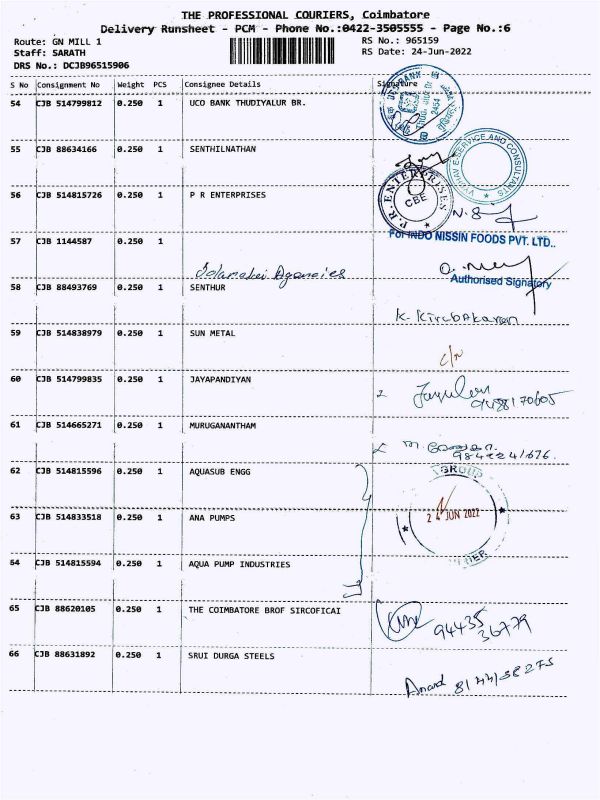 THE PROFESSIONAL COURIERS, Coimbatore
Delivery Runsheet - PCM - Phone No.:0422-3505555 - Page No.:6
Route: GN MILL 1
Staff: SARATH
DRS No.: DCJB96515906
RS No.: 965159
RS Date: 24-Jun-2022
S No Consignment No Weight PCS Consignee Details Signature
54 CJB 514799812 0.250 1 UCO BANK THUDIYALUR BR.
2454
55 CJB 88634166 0.250 1 SENTHILNATHAN
E-SERVICE AND CONSULTANTS
56 CJB 514815726 0.250 1 P R ENTERPRISES
P.R. ENTERPRISES
CBE
57 CJB 1144587 0.250 1
For INDO NISSIN FOODS PVT. LTD..
Authorised Signatory
58 CJB 88493769 0.250 1 SENTHUR
K. Kirubakaran
59 CJB 514838979 0.250 1 SUN METAL
60 CJB 514799835 0.250 1 JAYAPANDIYAN
61 CJB 514665271 0.250 1 MURUGANANTHAM
62 CJB 514815596 0.250 1 AQUASUB ENGG
GROUP
63 CJB 514833518 0.250 1 ANA PUMPS
24 JUN 2022
64 CJB 514815594 0.250 1 AQUA PUMP INDUSTRIES
65 CJB 88620105 0.250 1 THE COIMBATORE BROF SIRCOFICAI
94435
36779
66 CJB 88631892 0.250 1 SRUI DURGA STEELS
Anand 8144138275